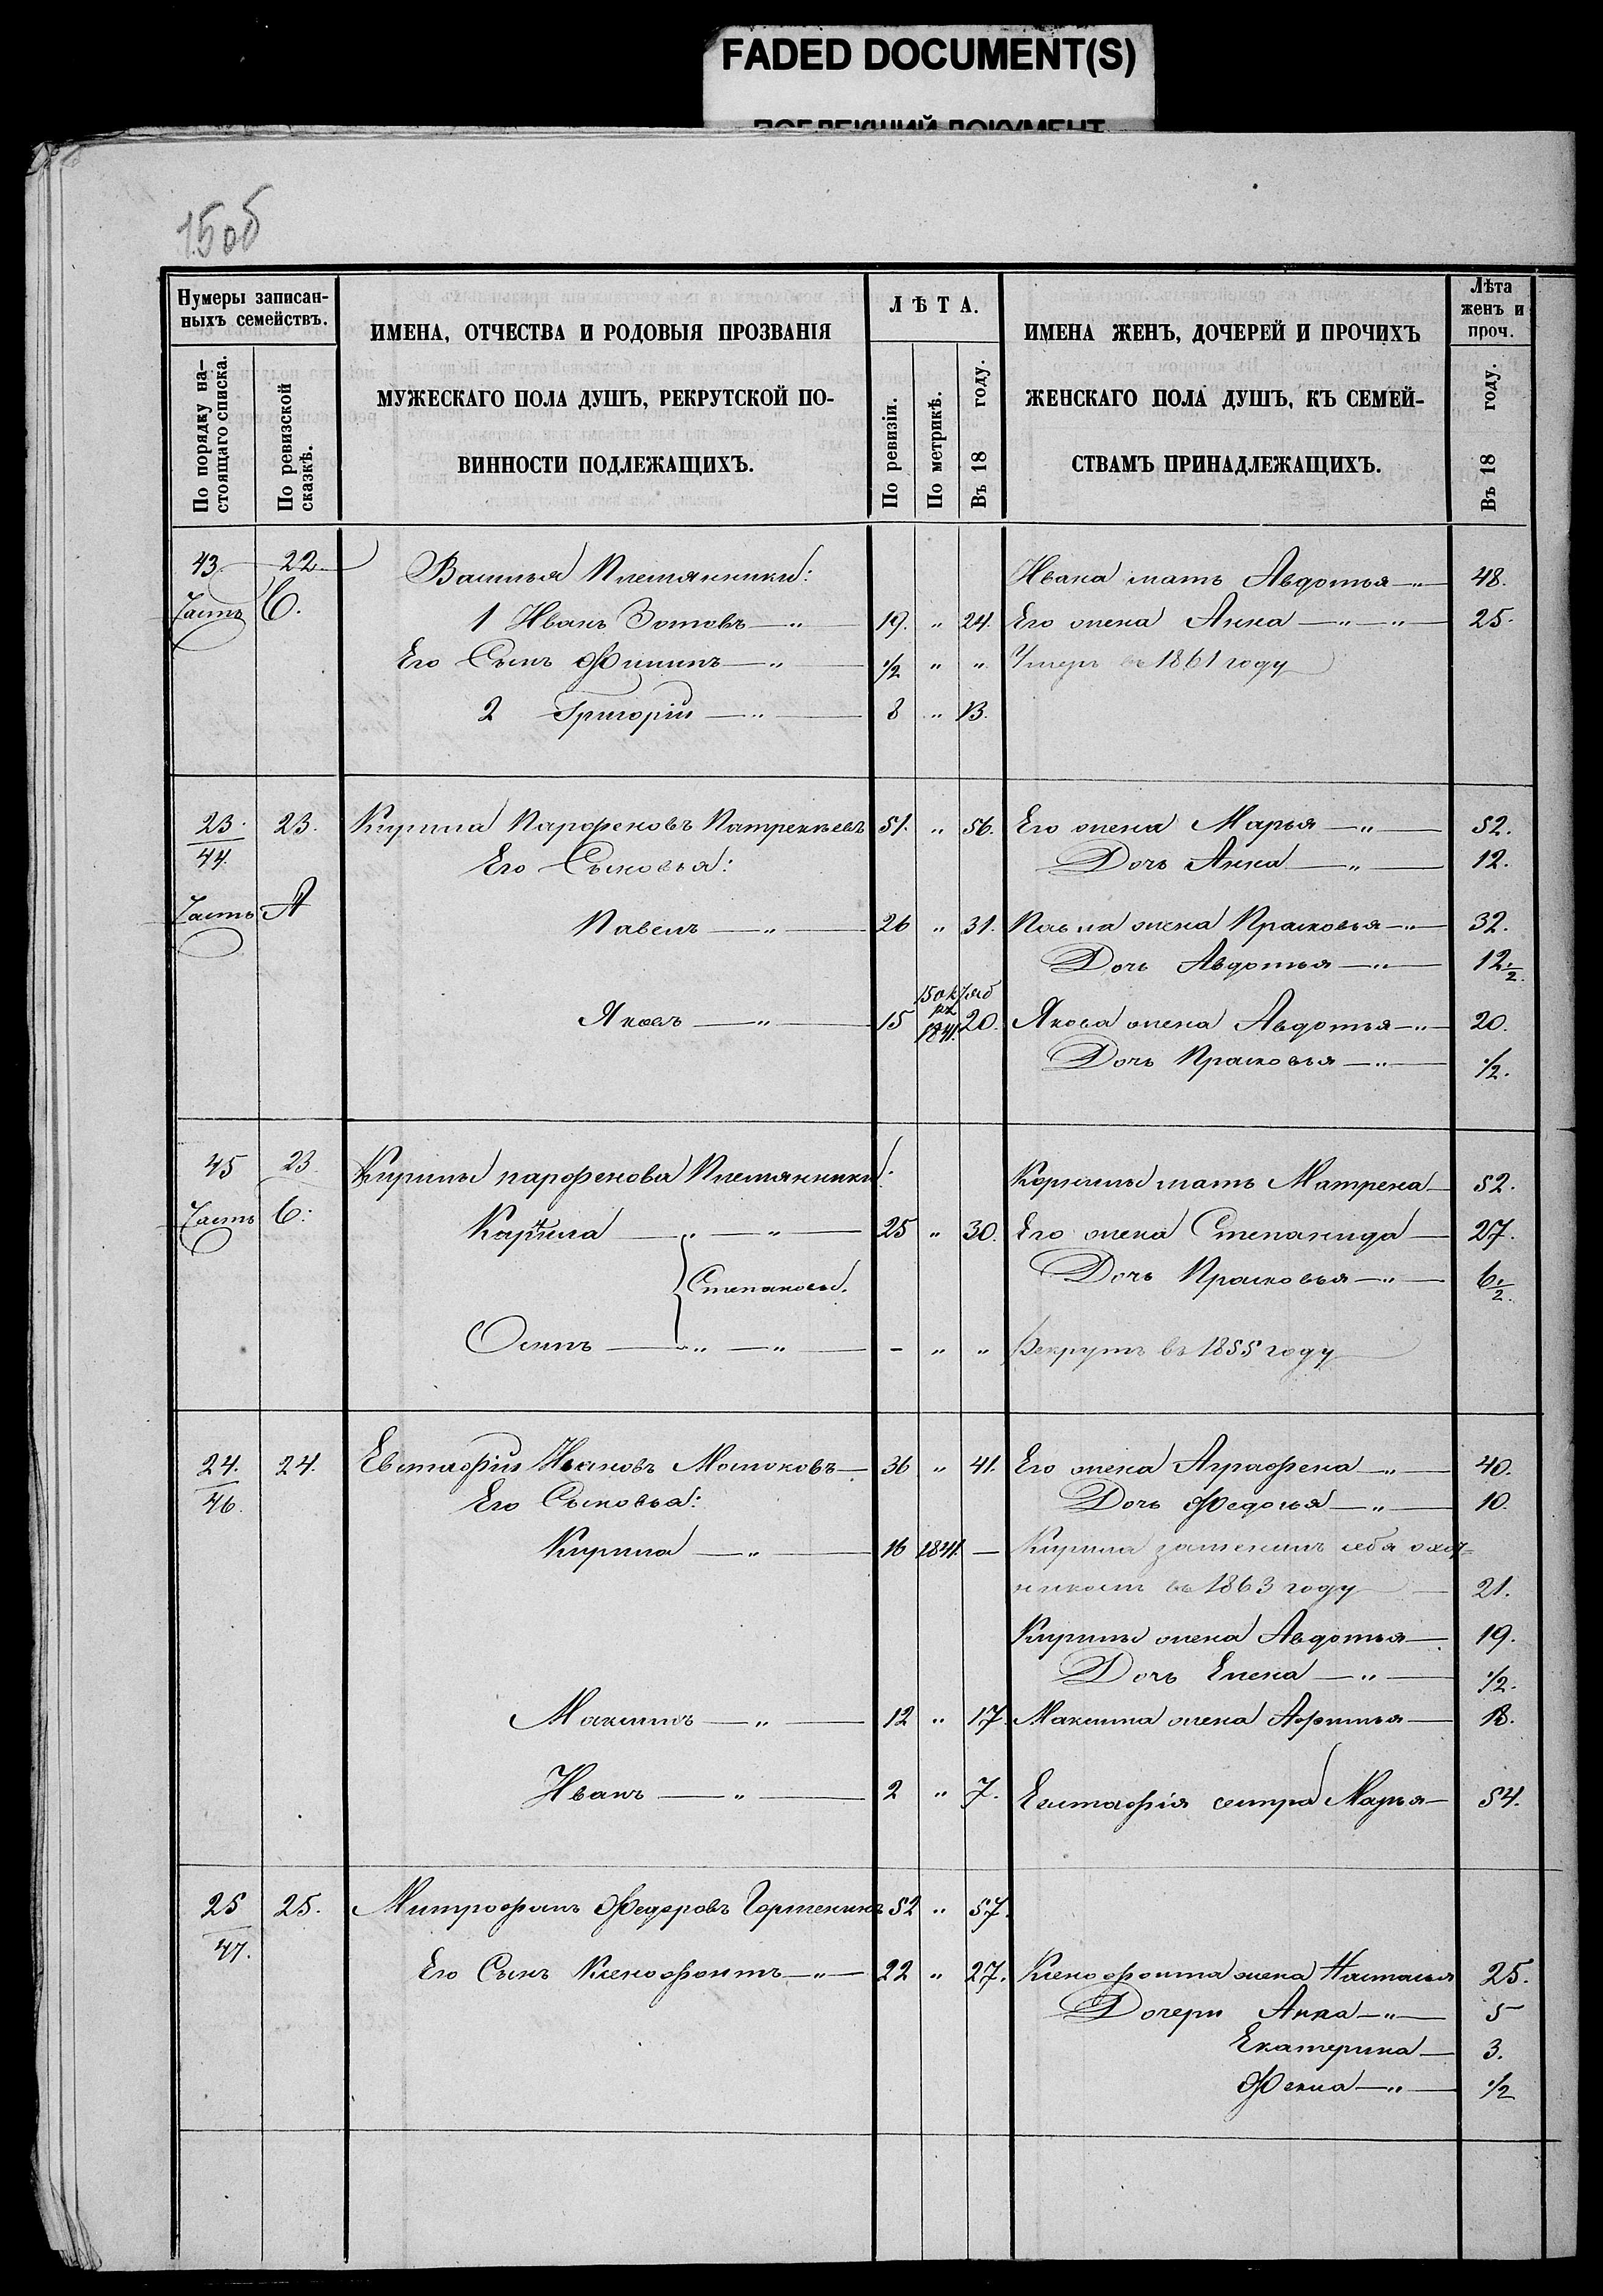 FADED DOCUMENT(S)
ПОБЛЕКШИЙ ДОКУМЕНТ
15об
Нумеры записан-
ныхъ семействъ.
По порядку на-
стоящаго списка.
По ревизской
сказкѣ.
ИМЕНА, ОТЧЕСТВА И РОДОВЫЯ ПРОЗВАНІЯ
МУЖЕСКАГО ПОЛА ДУШЪ, РЕКРУТСКОЙ ПО-
ВИННОСТИ ПОДЛЕЖАЩИХЪ.
ЛѢТА.
По ревизіи.
По метрикѣ.
Въ 18 году.
ИМЕНА ЖЕНЪ, ДОЧЕРЕЙ И ПРОЧИХЪ
ЖЕНСКАГО ПОЛА ДУШЪ, КЪ СЕМЕЙ-
СТВАМЪ ПРИНАДЛЕЖАЩИХЪ.
Лѣта
женъ и
проч.
Въ 18 году.
43 22 Василья Племянники: Ивана мать Авдотья —„— 48.
Часть б. 1 Иванъ Зотовъ —„— 19. „ 24. Его жена Анна —„—„— 25.
Его Сынъ Филипъ —„— 1/2 „ „ Умеръ въ 1861 году
2 Григорій —„— 8 „ 13.
23. 23. Кирила Парфеновъ Патрекѣевъ 51. „ 56. Его жена Марья —„— 52.
44. Его Сыновья: Дочь Анна —„— 12.
Часть А Павелъ —„— 26 „ 31. Павла жена Прасковья —„— 32.
Дочь Авдотья —„— 12 1/2.
15 октяб
Яковъ —„— 15 1841. 20. Якова жена Авдотья —„— 20.
Дочь Прасковья —„— 1/2.
45 23. Кирилы парфенова Племянники: Корнилы мать Матрена — 52.
Часть б: Корнила —„—„— 25 „ 30. Его жена Степанида — 27.
Степановы. Дочь Прасковья —„— 6 1/2.
Осипъ —„—„— - „ „ Рекрутъ въ 1855 году
24. 24. Евстафій Ивановъ Молоковъ — 36 „ 41. Его жена Аграфена —„— 40.
46. Его Сыновья: Дочь Федосья —„— 10.
Кирила —„— 16 1841. — Кирила замѣнилъ себя охот=
никомъ въ 1863 году — 21.
Кирилы жена Авдотья — 19.
Дочь Елена —„— 1/2.
Максимъ —„— 12 „ 17. Максима жена Афимья — 18.
Иванъ —„— 2 „ 7. Евстафія сестра Марья — 54.
25 25. Митрофанъ Федоровъ 52 „ 57.
47. Его Сынъ Ксенофонтъ —„— 22 „ 27. Ксенофонта жена Настасья 25.
Дочери Анна —„— 5
Екатерина — 3.
Фекла —„— 1/2